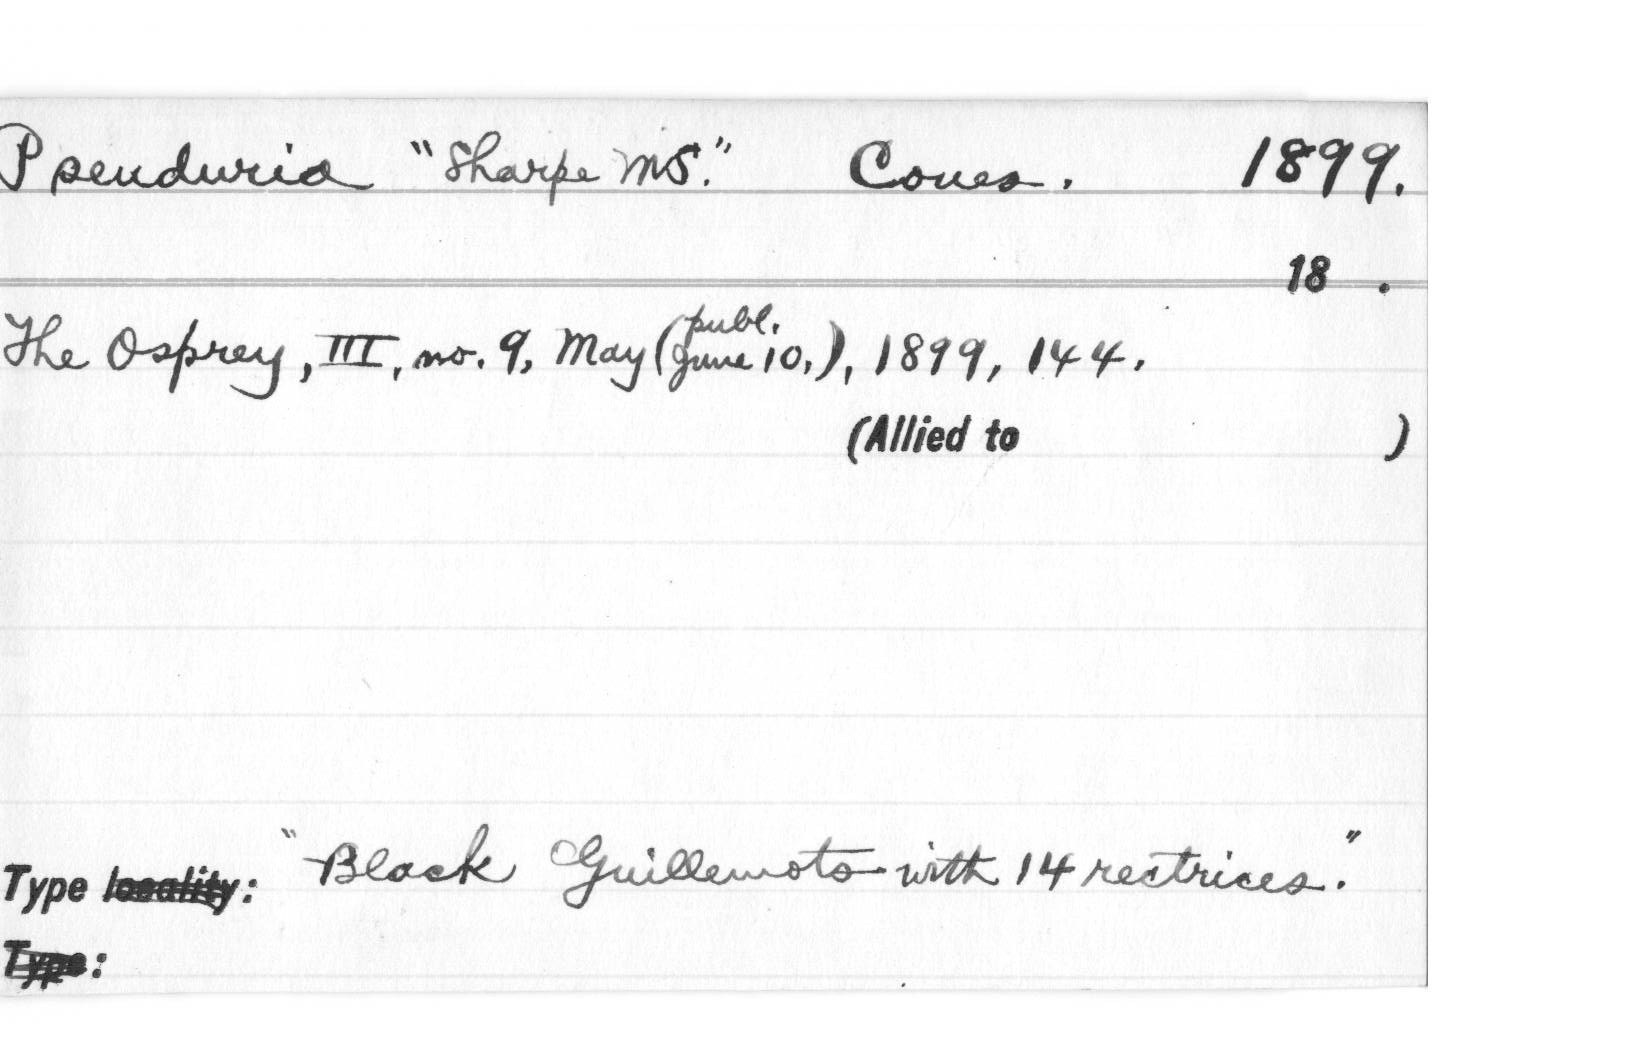 Pseuduria "Sharpe MS." Coues. 1899.
18 .
The Osprey, III, no. 9, May (publ. June 10.), 1899, 144.
(Allied to )
Type locality: "Black Guillemots with 14 rectrices."
Type: